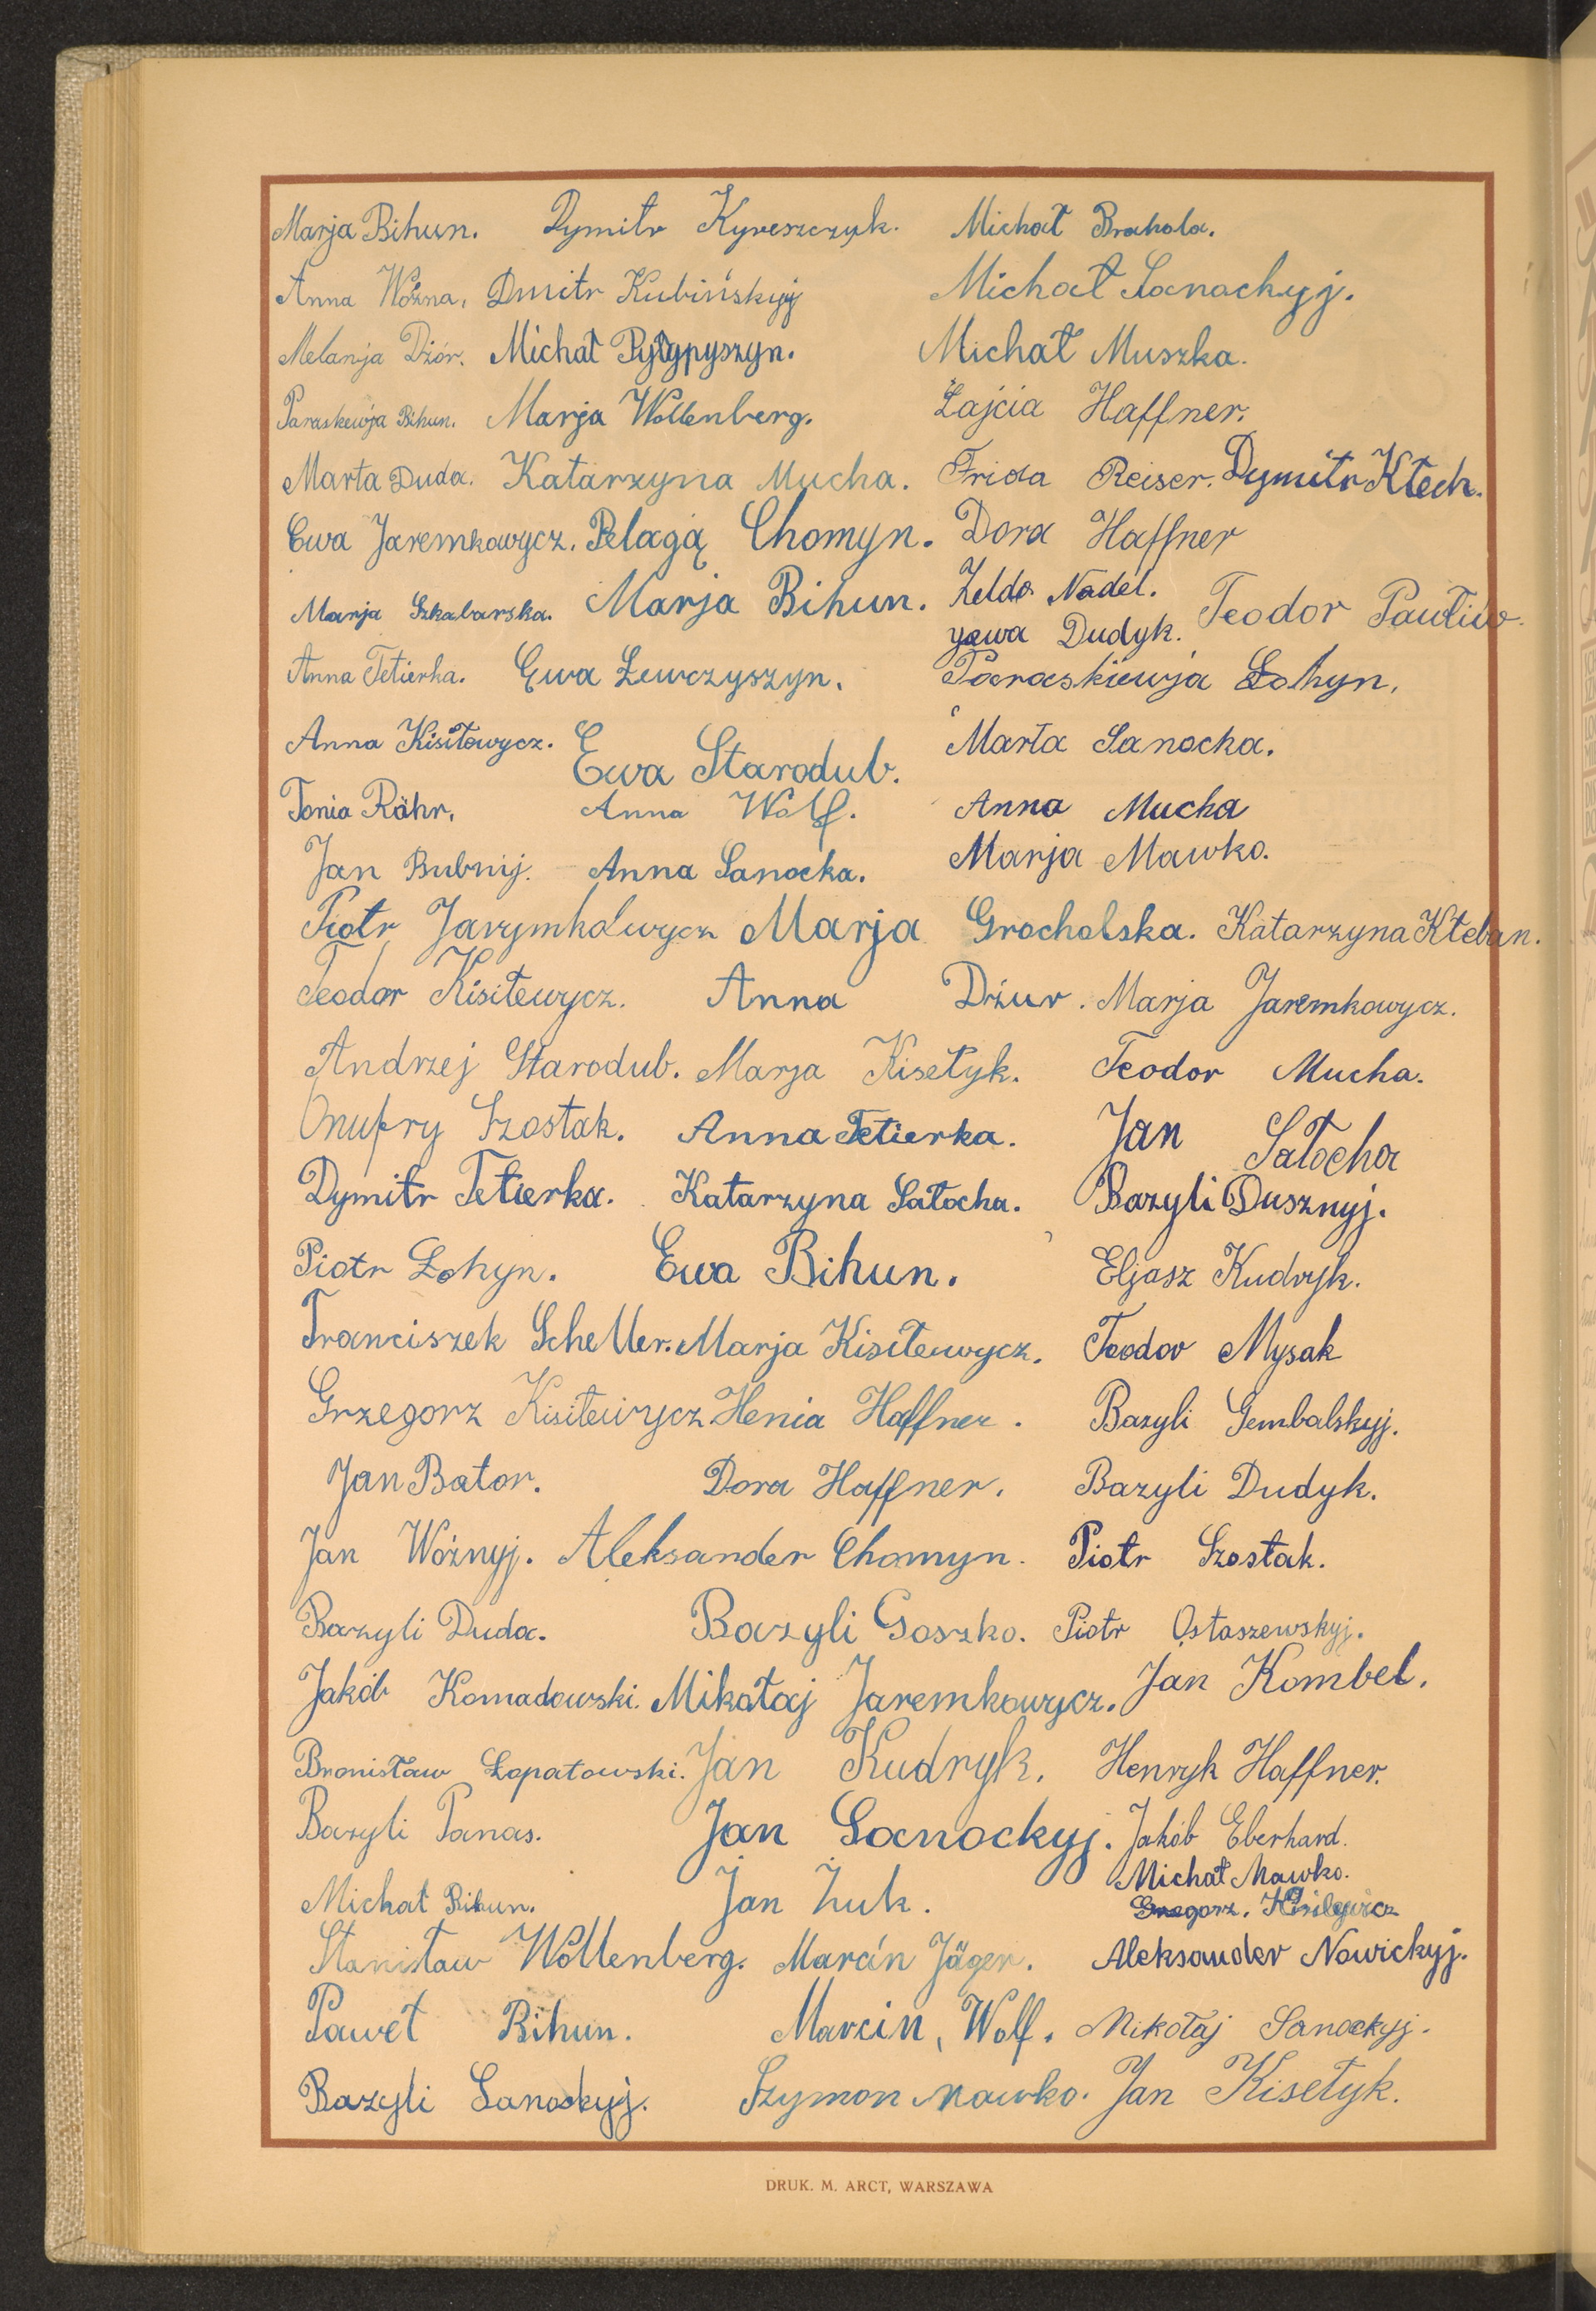 Marja Bihun. Dymitr Kyreszczyk. Michał Brahola.
Anna Woźna. Dmitr Kubińskyj Michał Sanockyj.
Melanja Dżór. Michał Pyłypyszyn. Michał Muszka.
Paraskewja Bihun. Marja Wollenberg. Łajcia Haffner.
Marta Duda. Katarzyna Mucha. Frida Reiser. Dymitr Kłech.
Ewa Jaremkowycz. Pelagą Chomyn. Dora Haffner
Marja Szkabarska. Marja Bihun. Zelda Nadel. Teodor Pawliw.
Jewa Dudyk.
Anna Tetierka. Ewa Lewczyszyn. Paraskiewja Łohyn.
Anna Kisiłewycz. Ewa Starodub. Marta Sanocka.
Tonia Röhr. Anna Wolf. Anna Mucha
Jan Bubnij. Anna Sanocka. Marja Mawko.
Piotr Jarymkowycz Marja Grocholska. Katarzyna Kłeban.
Teodor Kisiłewycz. Anna Dżur. Marja Jaremkowycz.
Andrzej Starodub. Marja Kisełyk. Teodor Mucha.
Onufry Szostak. Anna Tetierka. Jan Sałocha
Dymitr Tetierka. Katarzyna Sałocha. Bazyli Dusznyj.
Piotr Łohyn. Ewa Bihun. Eljasz Kudryk.
Franciszek Scheller. Marja Kisiłewycz. Teodor Mysak
Grzegorz Kisiłewycz Henia Haffner. Bazyli Gembalskyj.
Jan Bator. Dora Haffner. Bazyli Dudyk.
Jan Woźnyj. Aleksander Chomyn. Piotr Szostak.
Bazyli Duda. Bazyli Goszko. Piotr Ostaszewskyj.
Jakób Komadowski. Mikołaj Jaremkowycz. Jan Kombel.
Bronisław Łopatowski. Jan Kudryk. Henryk Haffner.
Bazyli Panas. Jan Sanockyj. Jakób Eberhard.
Michał Mawko.
Michał Bihun. Jan Żuk. Grzegorz.
Stanisław Wollenberg. Marcin Jäger. Aleksander Nowickyj.
Paweł Bihun. Marcin, Wolf. Mikołaj Sanockyj.
Bazyli Sanockyj. Szymon Mawko. Jan Kisełyk.
DRUK. M. ARCT, WARSZAWA